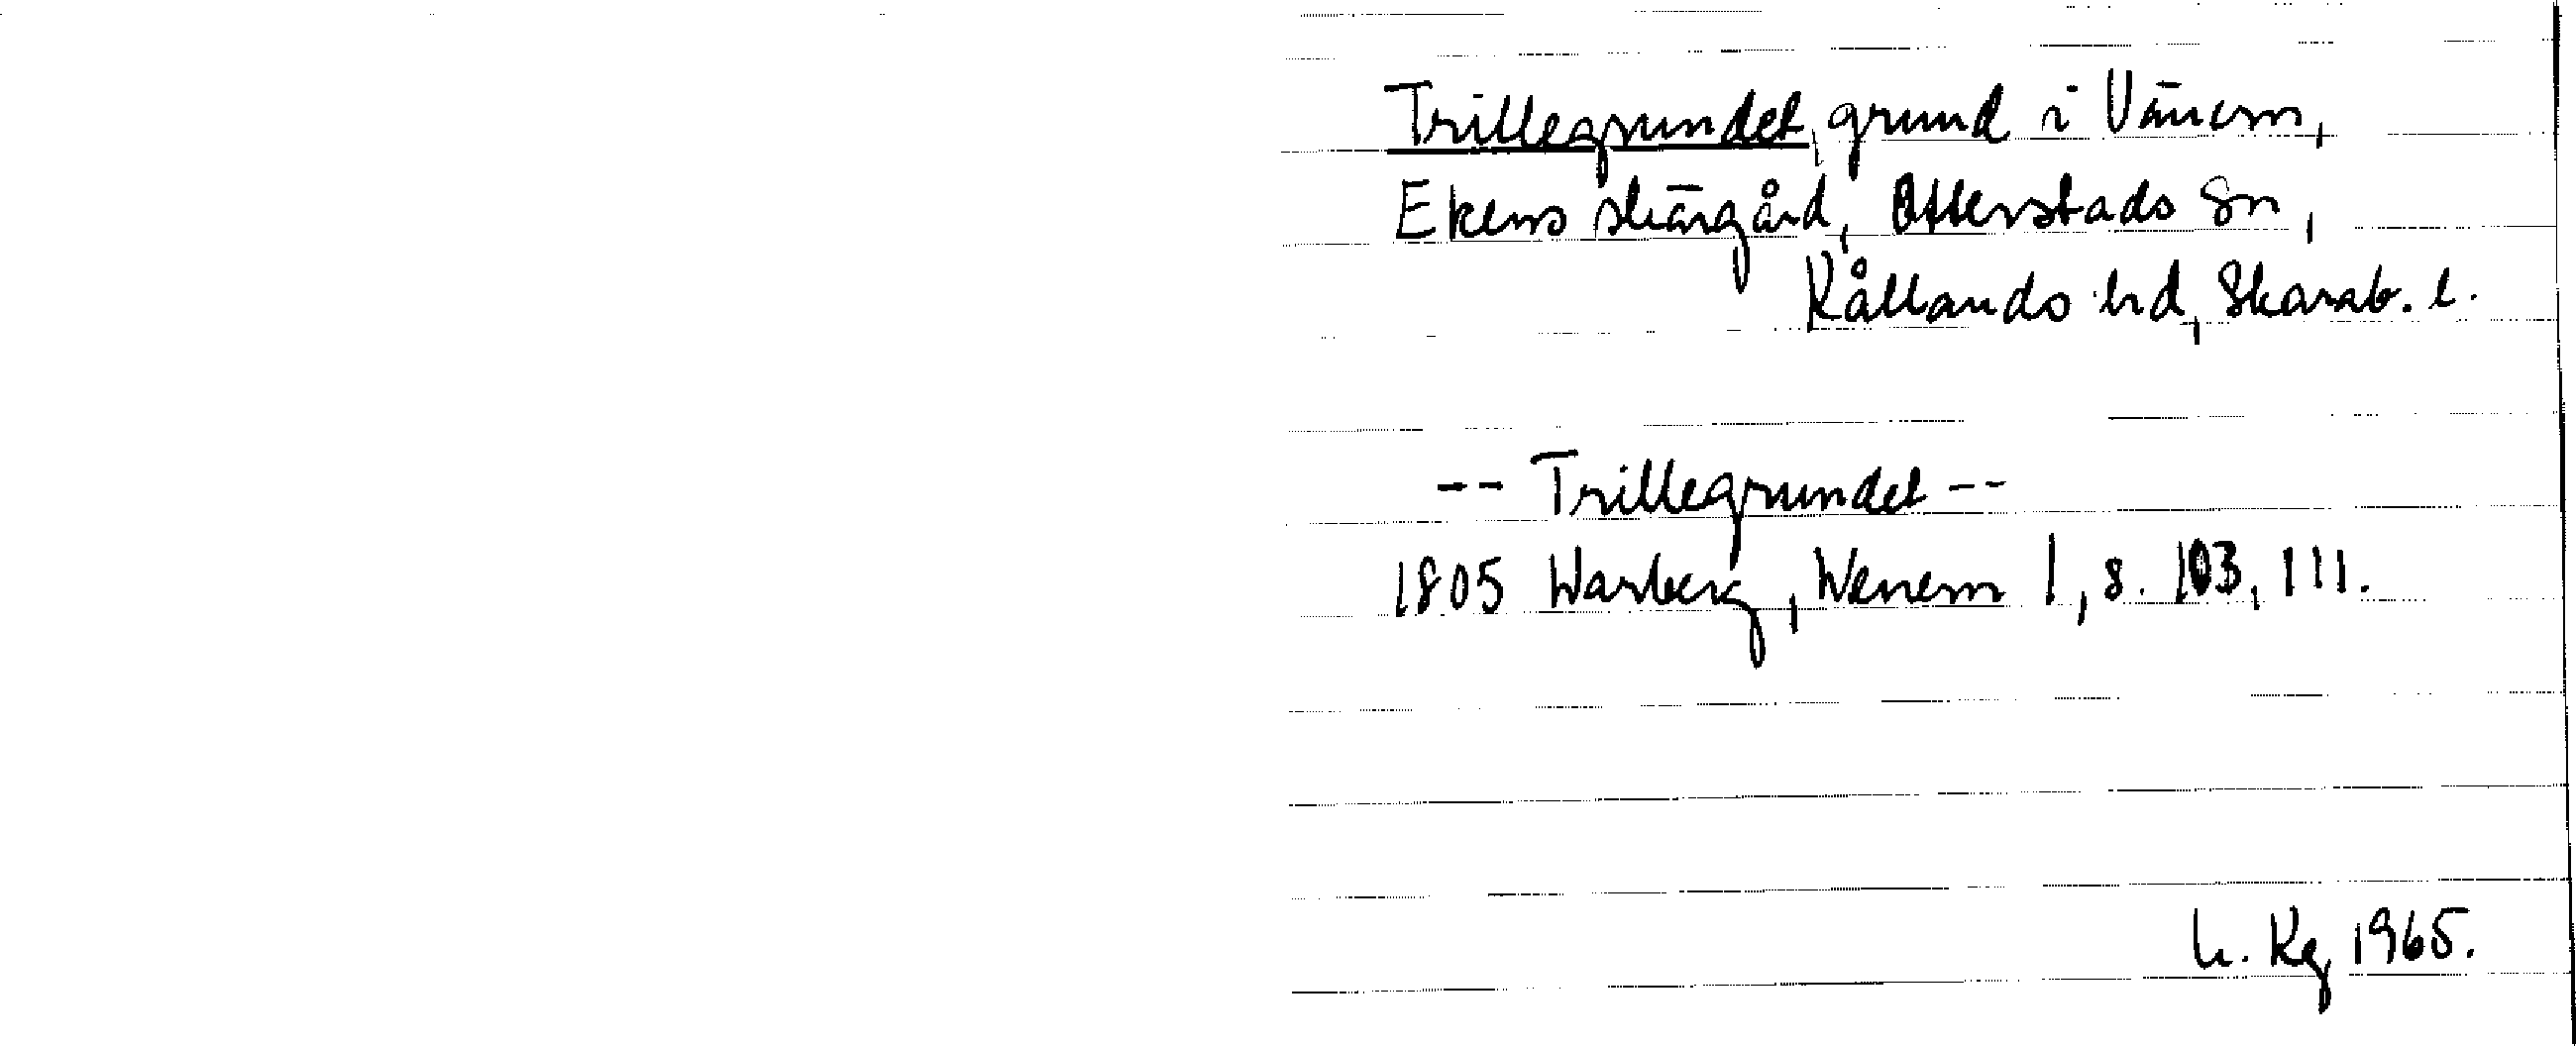 Trillegrundet, grund i Vänern,
Ekens skärgård, Otterstads sn,
Kållands hd, Skarab. l.
-- Trillegrundet --
1805 Warberg, Wenern 1, s. 103, 111.
Kg 1965.